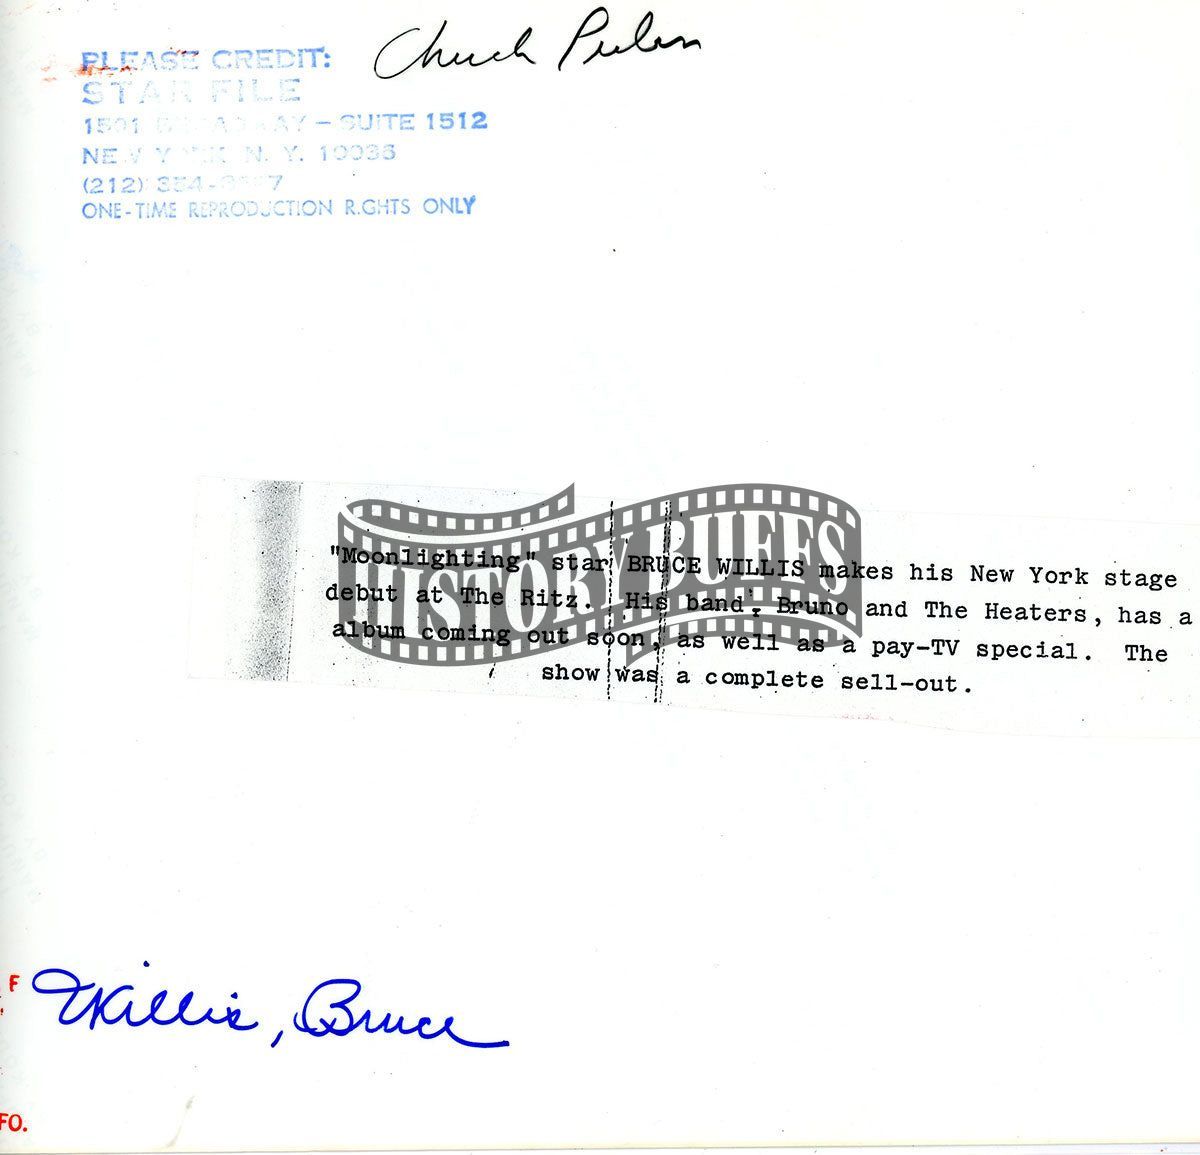 Chuck Pulin
PLEASE CREDIT:
STAR FILE
1501 BROADWAY – SUITE 1512
NEW YORK N. Y. 10036
(212) 354-
ONE-TIME REPRODUCTION RIGHTS ONLY
HISTORY BUFFS
"Moonlighting" star BRUCE WILLIS makes his New York stage
debut at The Ritz. His band, Bruno and The Heaters, has a
album coming out soon, as well as a pay-TV special. The
show was a complete sell-out.
F
Willis, Bruce
FO.